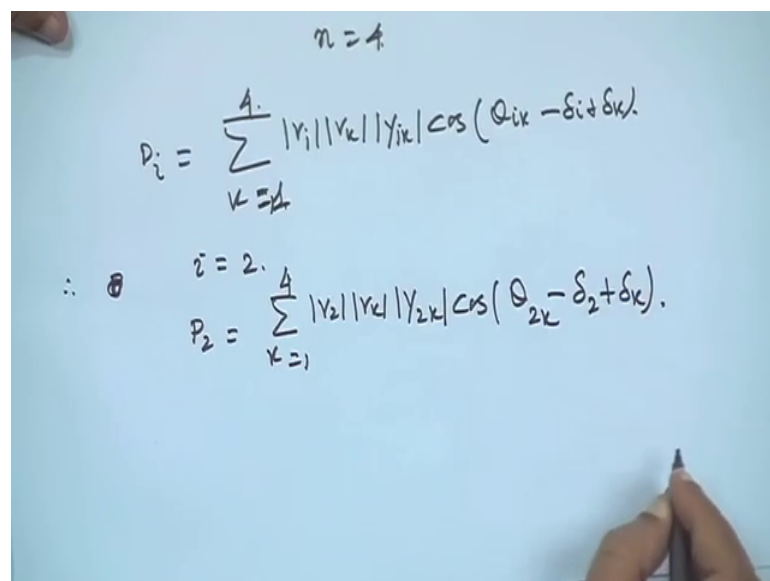 n = 4.
P_i = \sum_{k=1}^{4.} |V_i||V_k||Y_{ik}| cos(θ_{ik} - δ_i + δ_k).
∴ i = 2.
P_2 = \sum_{k=1}^{4} |V_2||V_k||Y_{2k}| cos(θ_{2k} - δ_2 + δ_k).